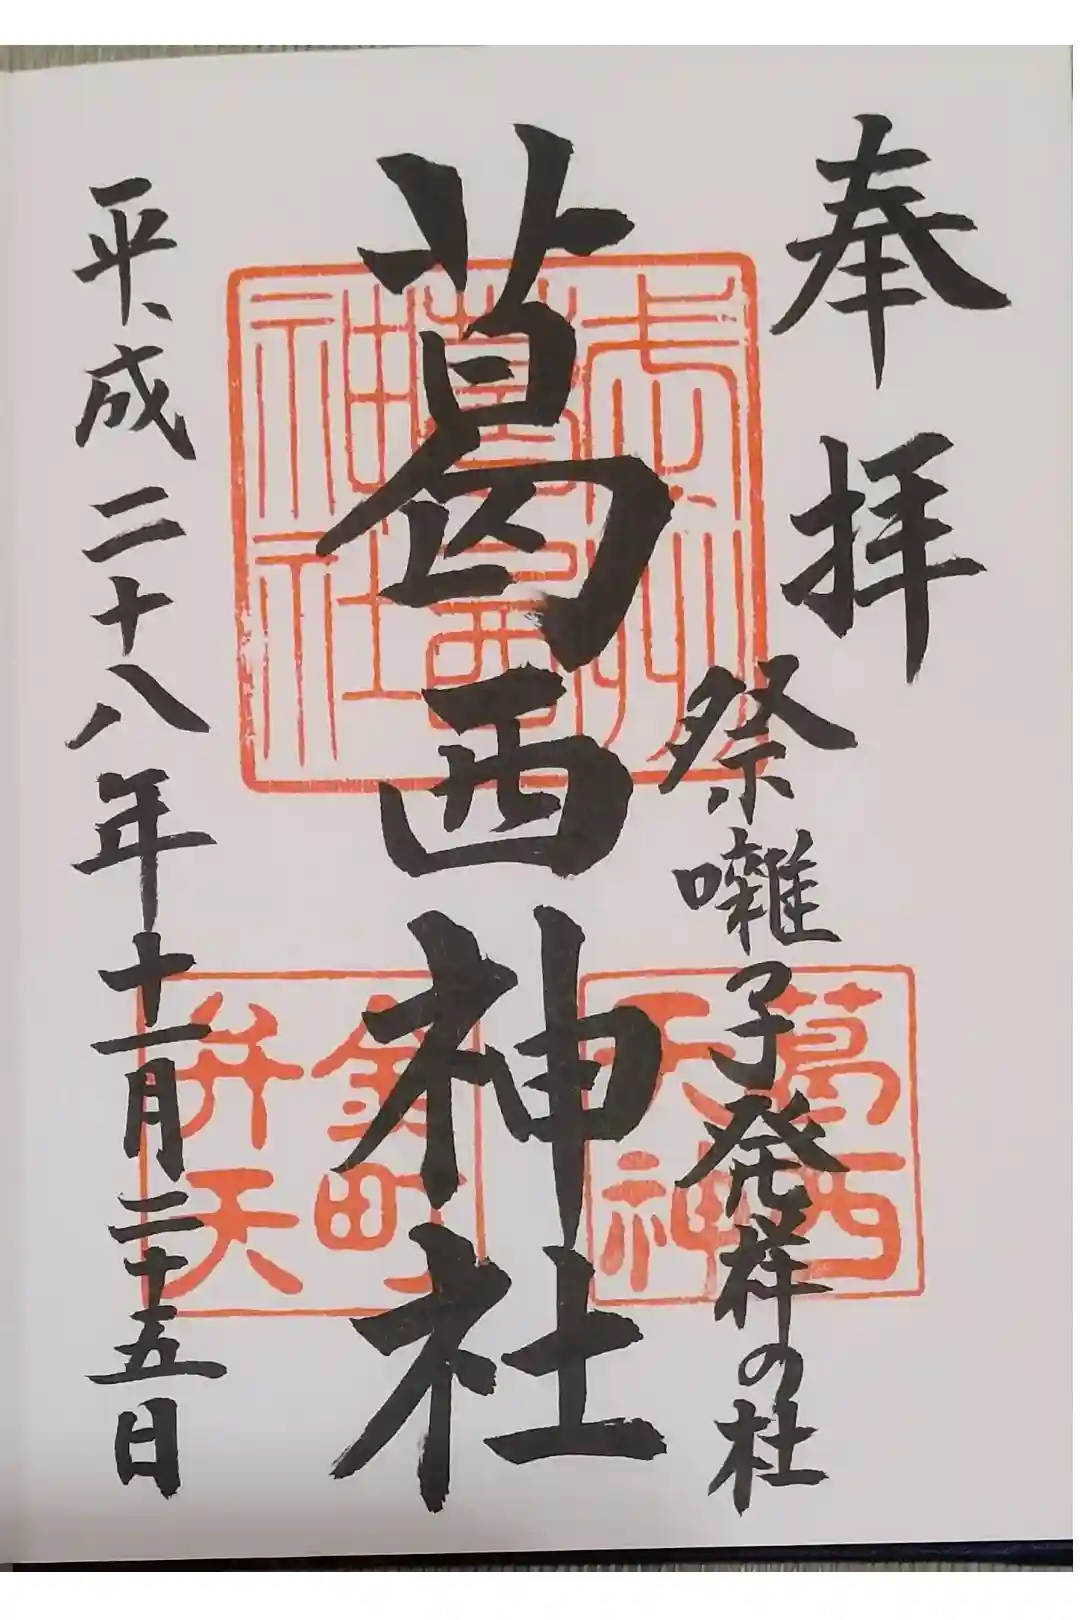 奉拝
祭囃子発祥の杜
葛西神社
平成二十八年十一月二十五日
葛西
神社
葛西
天神
金町
弁天